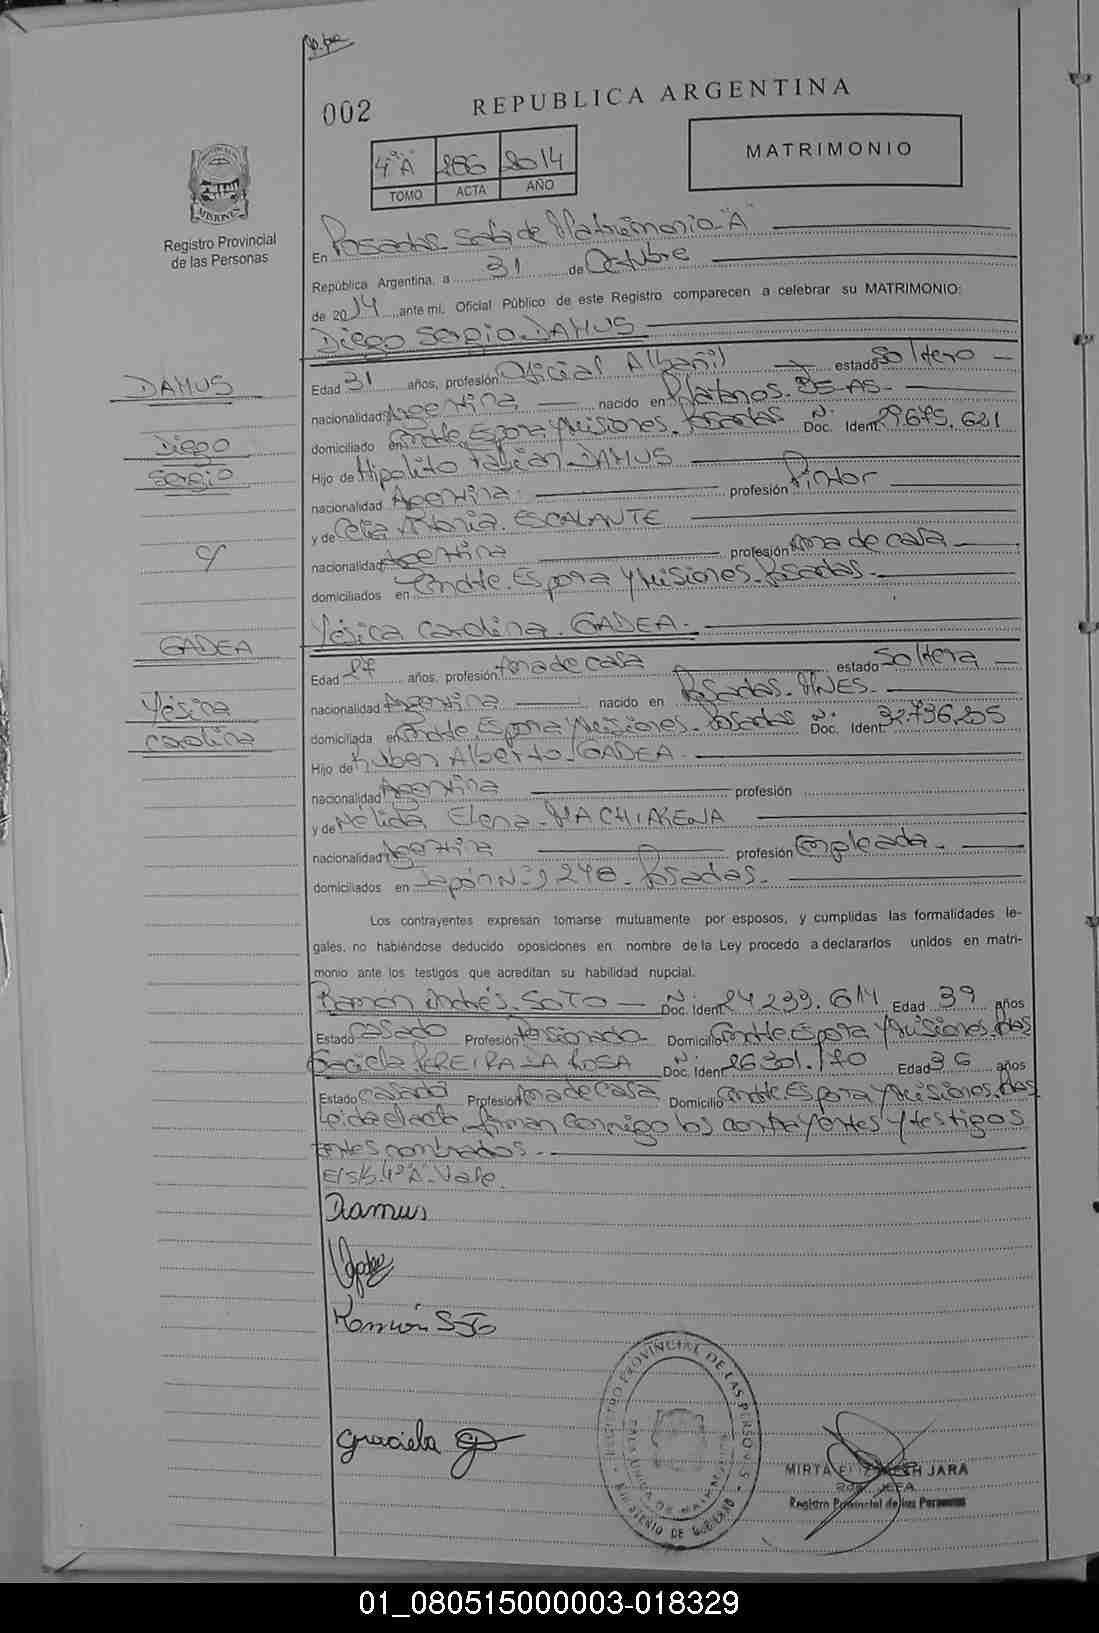 002
REPUBLICA ARGENTINA
MATRIMONIO
4º A 286 2014
TOMO ACTA AÑO
MISIONES
Registro Provincial
de las Personas
En Posadas Sala de Matrimonio "A"
República Argentina, a 31 de Octubre
de 2014 ante mi, Oficial Público de este Registro comparecen a celebrar su MATRIMONIO:
Diego Sergio DAMUS
DAMUS
Diego
Sergio
c/
GADEA
Yésica
Carolina
Edad 31 años, profesión Oficial Albañil estado Soltero
nacionalidad Argentina nacido en Plátanos. BS-AS.
domiciliado en Cndte. Espora y Misiones. Posadas Doc. Ident. Nº 29.675.621
Hijo de Hipólito Fabián DAMUS
nacionalidad Argentina profesión Pintor
y de Celia Antonia ESCALANTE
nacionalidad Argentina profesión Ama de casa
domiciliados en Cndte. Espora y Misiones. Posadas.
Yésica Carolina. GADEA.
Edad 27 años, profesión Ama de casa estado Soltera
nacionalidad Argentina nacido en Posadas. MNES.
domiciliada en Cndte. Espora y Misiones. Posadas Doc. Ident. Nº 32.736.255
Hijo de Ruben Alberto GADEA.
nacionalidad Argentina profesión
y de Nélida Elena MACHIARENA
nacionalidad Argentina profesión Empleada.
domiciliados en Japón Nº 1248. Posadas.
Los contrayentes expresan tomarse mutuamente por esposos, y cumplidas las formalidades le-
gales, no habiéndose deducido oposiciones en nombre de la Ley procedo a declararlos unidos en matri-
monio ante los testigos que acreditan su habilidad nupcial.
Ramón Andrés SOTO Doc. Ident. Nº 24.239.614 Edad 39 años
Estado Casado Profesión Pensionado Domicilio Cndte Espora y Misiones. Pdas
Graciela PEREIRA DA ROSA Doc. Ident. Nº 26.301.170 Edad 36 años
Estado Casada Profesión Ama de Casa Domicilio Cndte. Espora y Misiones. Pdas
Leida el acta firman conmigo los contrayentes y testigos
antes nombrados.
E/s/b. 4º A. Vale.
Damus
Ramón Soto
Graciela
REGISTRO PROVINCIAL DE LAS PERSONAS
MINISTERIO DE GOBIERNO
MIRTA JARA
2da. JEFA
Registro Provincial de las Personas
01_080515000003-018329